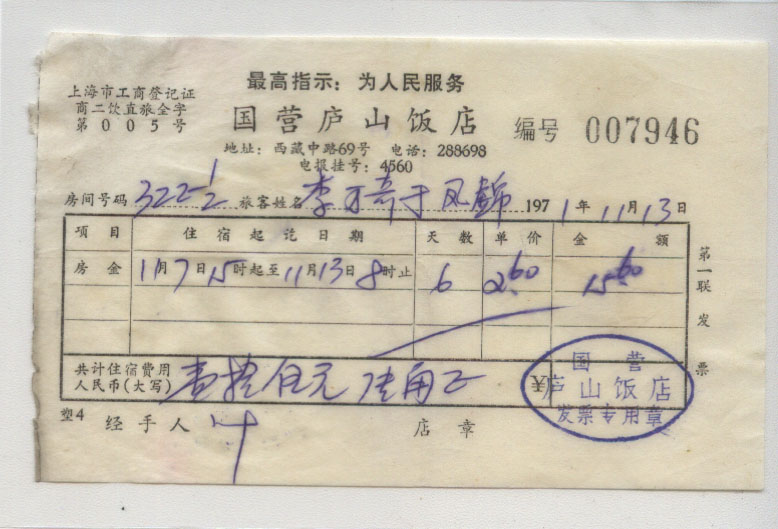 最高指示：为人民服务
上海市工商登记证
商二饮直旅全字
第005号
国营庐山饭店
编号 007946
地址：西藏中路69号 电话：288698
电报挂号：4560
房间号码 322-1/2 旅客姓名 李 于凤錦 1971年11月13日
项目 住宿起讫日期 天数 单价 金额
房金 11月7日15时起至11月13日8时止 6 2.60 15.60
共计住宿费用
人民币(大写) 壹拾伍元陆角正
国营
庐山饭店
发票专用章
第一联发票
塑4 经手人 叶 店章